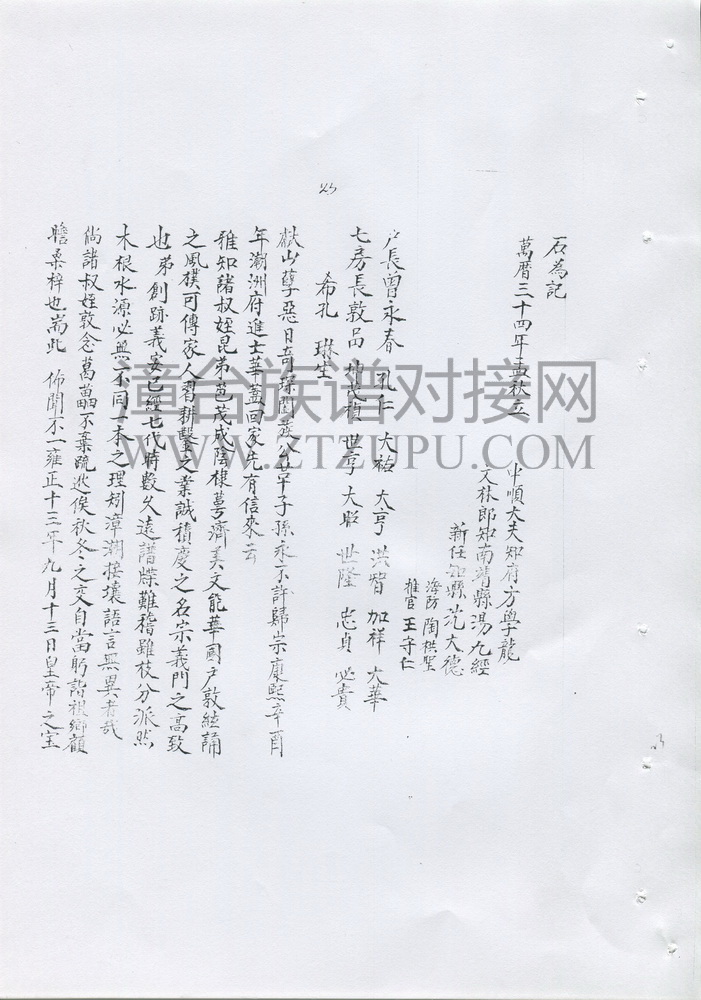 石為記
萬曆三十四年孟秋立
中順大夫知府方學龍
文林郎知南靖縣湯九經
新任知縣范大德
海防 陶拱聖
推官 王守仁
戶長曾永春 孔仁 大祐 大亨 洪智 加祥 大華
七房長敦品 世亨 大昭 世隆 忠貞 必貴
希孔 琳生
山孽惡日奇琛閏 公廿子孫永不許歸宗康熙辛酉
年潮洲府進士華蓋回家先有信來云
雅知諸叔姪昆弟芭茂成陰棣萼濟美文能華國戶敦絃誦
之風樸可傳家人習耕鑿之業誠積慶之名宗義門之高致
也弟創跡義安已經七代時數久遠譜牒難稽雖枝分派然
木根水源必無不同一本之理矧漳潮接壤語言無異者哉
倘諸叔姪敦念葛藟不棄疏逖俟秋冬之交自當躬詣祖鄉顧
瞻桑梓也耑此 佈聞不一雍正十三年九月十三日皇帝之宝
漳台族谱对接网
WWW.ZTZUPU.COM